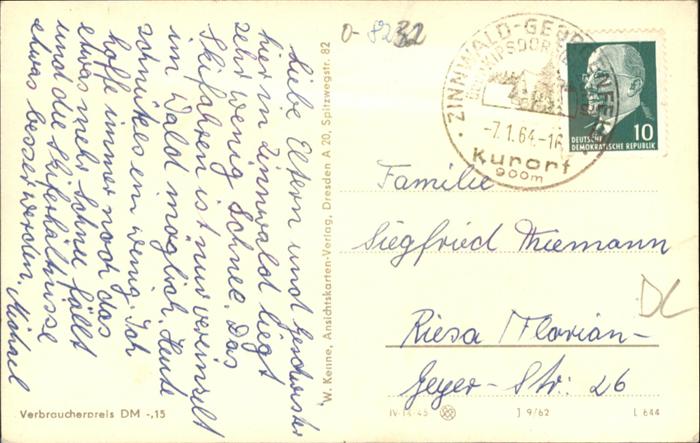 Liebe Eltern und Geschwister
hier in Zinnwald liegt
sehr wenig Schnee. Das
Skifahren ist nur vereinzelt
im Wald möglich. Heute
schneit es ein wenig. Ich
hoffe immer noch das
etwas mehr Schnee fällt
und die Skiverhältnisse
etwas besser werden. Michael
Verbraucherpreis DM -,15
W. Kenne, Ansichtskarten-Verlag, Dresden A 20, Spitzwegstr. 82
0-8232
ZINNWALD-GEORGENFELD
-7.1.64-16
Kurort
900m
10
DEUTSCHE
DEMOKRATISCHE REPUBLIK
Familie
Siegfried Thiemann
Riesa / Florian-
Geyer-Str: 26
IV-14-45 J 9/62 L 644